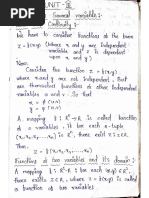 UNIT-III
Several variables:
Continuity:
We have to consider functions of the form
z = f(x,y) (where x and y are independent
variables and z is dependent
upon x and y).
Now,
Consider the function z = f(x,y)
where x and y are not independent. But
that are functions of other independent variables
u and v. So that
x = f(u,v)
y = (u,v)
A mapping f: R²→R is called function
of two variables is z. If two each n-tuple
(x₁,x₂,...,xₙ) in Rⁿ, there exists z∈R.
Then,
z = f(x₁,x₂,x₃,...,xₙ)
Functions of two variables and its domain:
A mapping f: R²→R two each (x,y)∈R²,
there exists z∈R, where z = f(x,y) is called
a function of two variables.